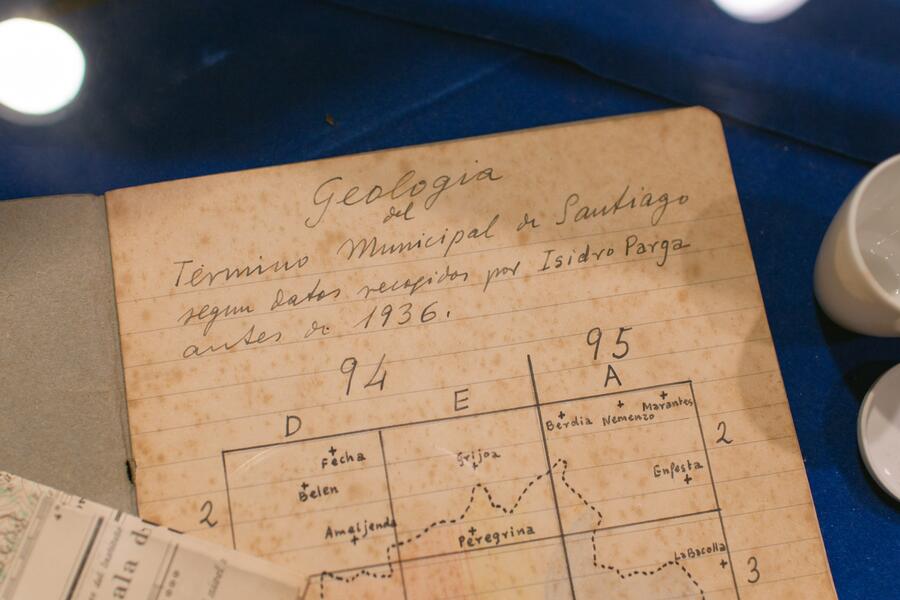 Geologia
del
Término Municipal de Santiago
segun datos recogidos por Isidro Parga
antes de 1936.
94 95
D E A
Fecha Grijoa Berdia Nemenzo Marantes 2
Belen Enfesta
2 Amaijenda Peregrina
LaBacolla 3
ala d